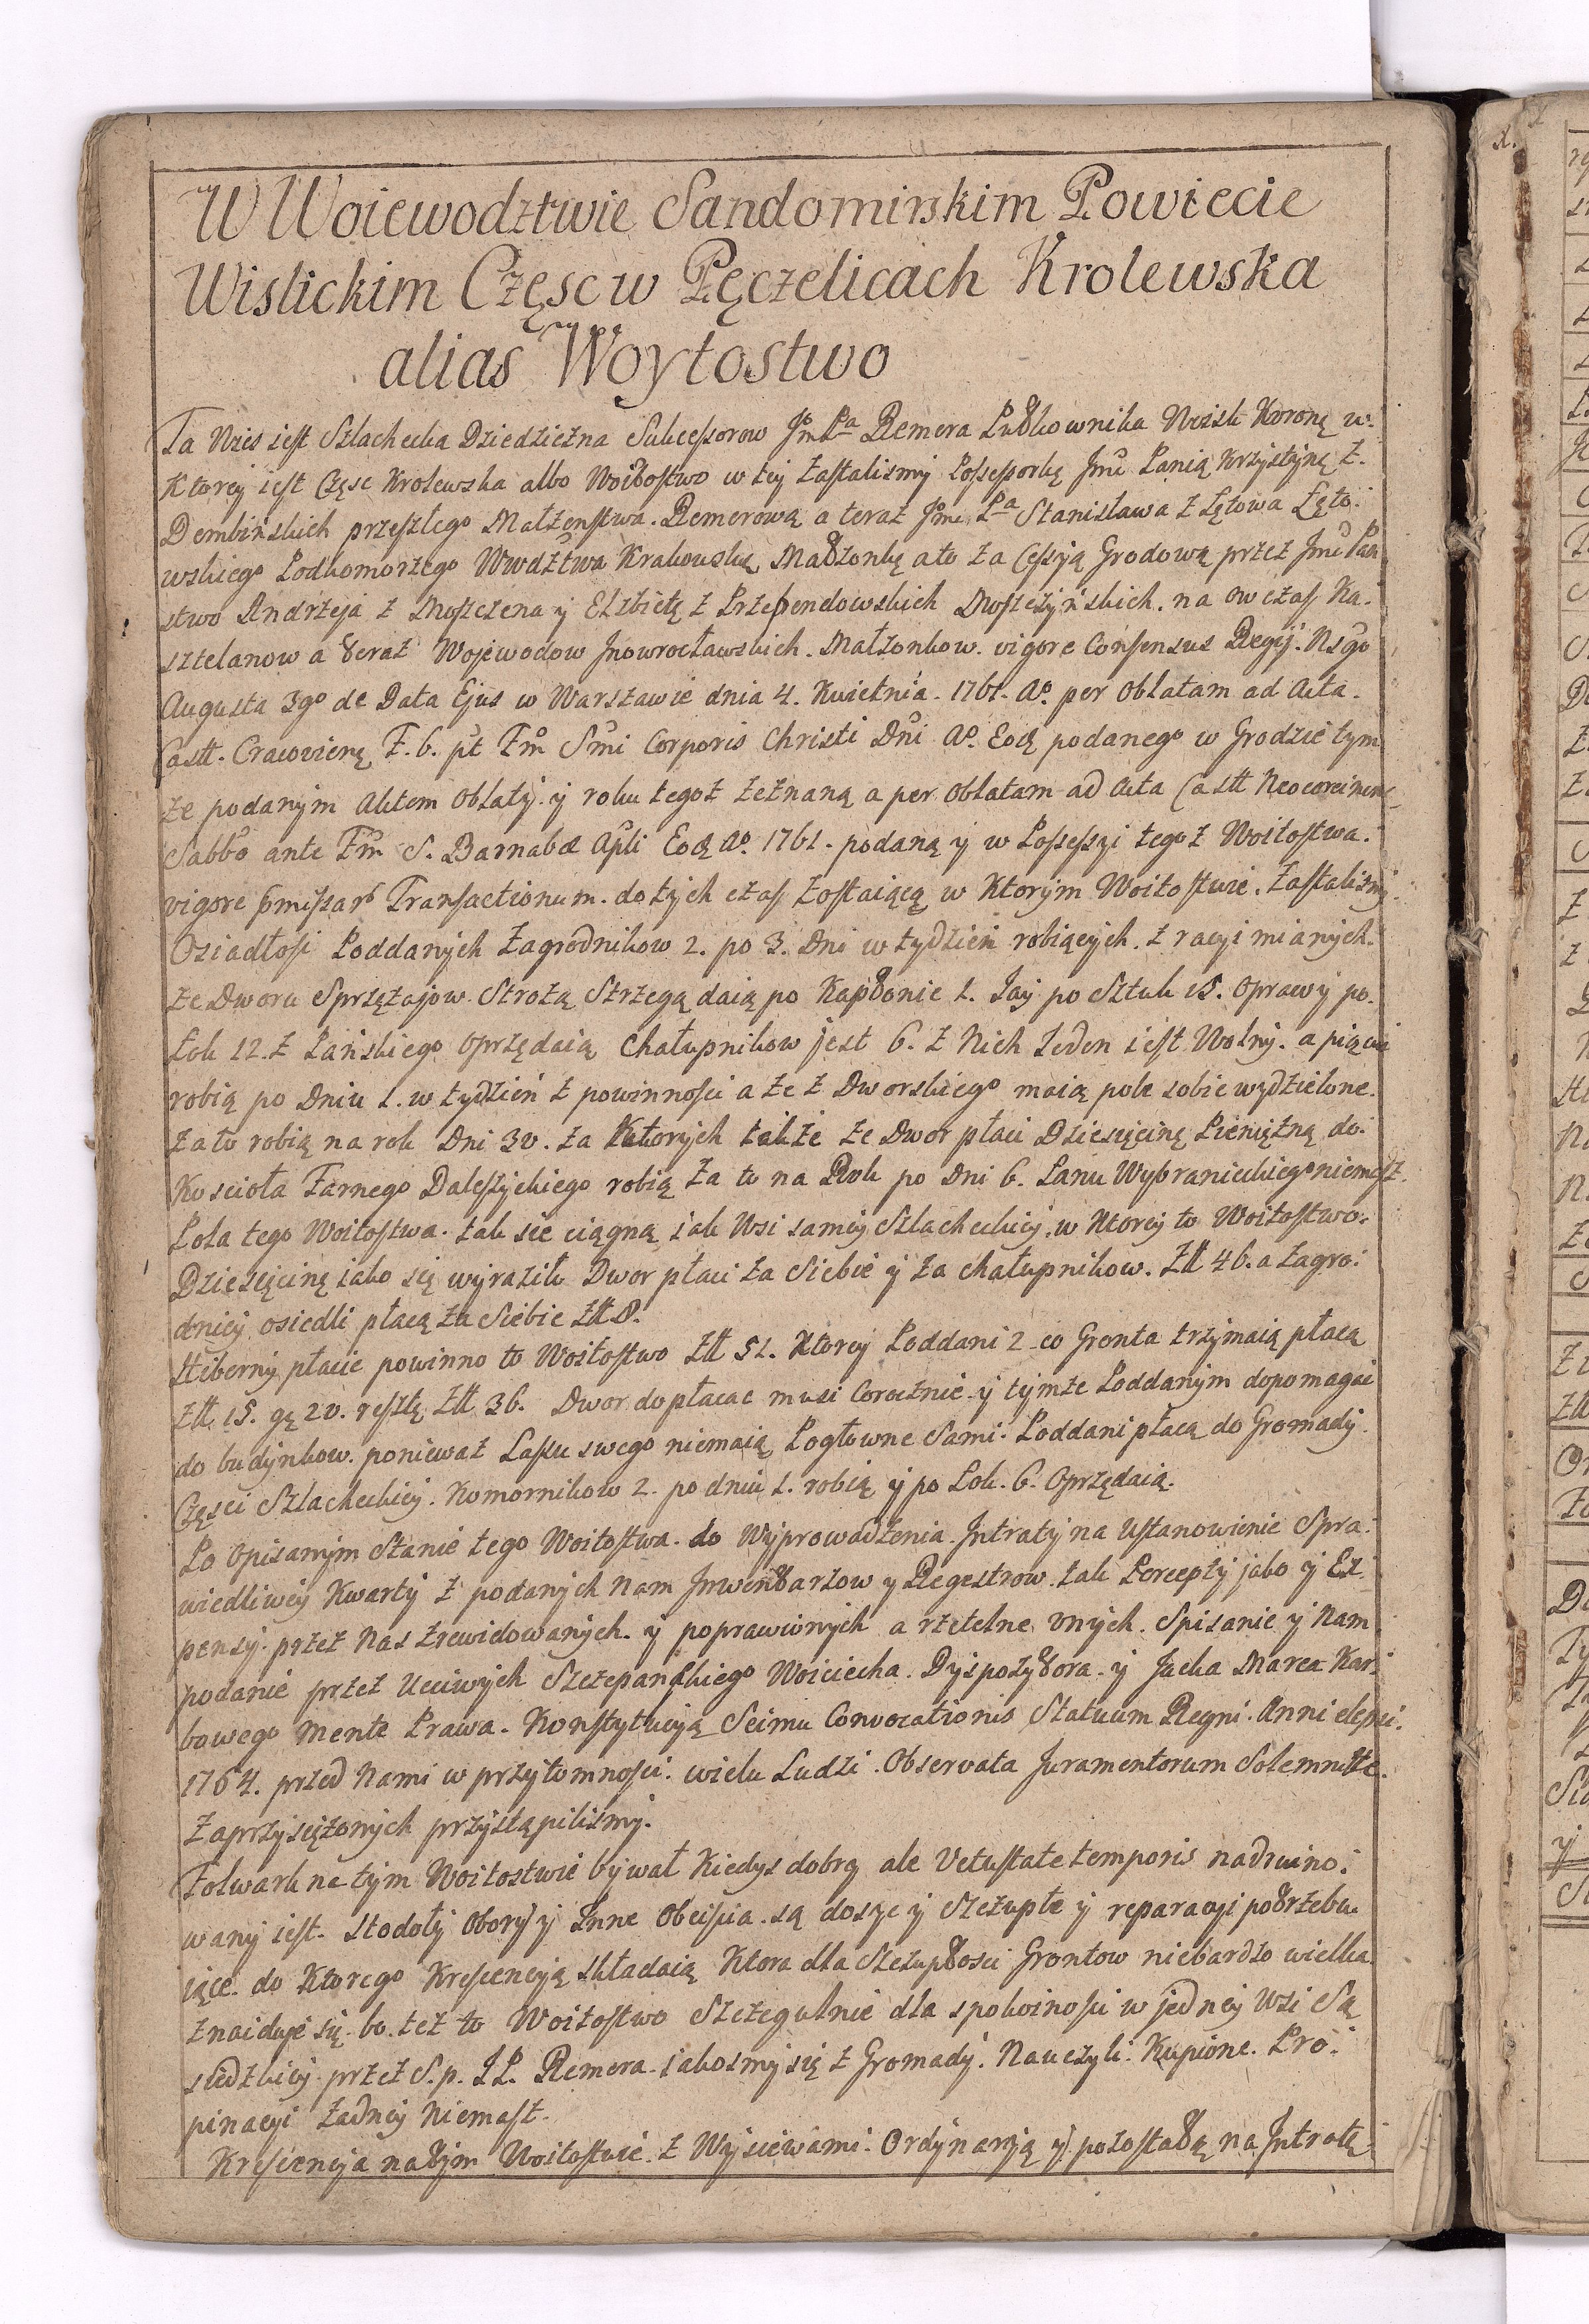 W Woiewodztwie Sandomirskim Powiecie
Wislickim Częsc w Pęczelicach Krolewska
alias Woytostwo
Ta Wies iest Szlachecka Dziedziczna Sukcessorow JmPa Remera Pułkownika Woisk Koronę w.
Ktorey iest Częsc Krolewska albo Woitostwo w tey zastalismy Possessorkę Jmć Panią Krzystynę z.
Dembińskich przeszłego Małżenstwa. Remerową a teraz Jme Pa Stanisława z Łętowa Łęto:
wskiego Podkomorzego Wwdztwa Krakowskię Małzonkę a to za Cessyą Grodową przez Jmć Pań
stwo Andrzeja z Moszczena y Elzbietę z Przependowskich Moszczyńskich. na ow czas Ka.
sztelanow a teraz Wojewodow Jnowrocławskich. Małzonkow. vigore Consensus Regij. Nsgo
Augusta 3go de Data Ejus w Warszawie dnia 4. Kwietnia. 1761. Ao. per Oblatam ad Acta.
Castt. Cracovienę F. 6. pt Fm Smi Corporis Christi Dni Ao. Eodę podanego w Grodzie tym
ze podanym Aktem Oblaty. y roku tegoż zeznaną a per Oblatam ad Acta Castt Neocorcinenę
Sabbo ante Fm S. Barnabæ Apli Eodę Ao. 1761. podaną y w Possessyi tegoż Woitostwa.
vigore pmissar Transactionum. dotych czas zostaiącą w Ktorym Woitostwie. Zastalismy
Osiadłosi Poddanych Zagrodnikow 2. po 3. Dni w tydzień robiących. z racyi mianych.
ze Dworu Sprzężajow. Strożą Strzegą daią po Kapłonie 1. Jay po Sztuk 15. Oprawy po.
Łok 12. z Pańskiego Oprzędaią Chałupnikow jest 6. z Nich Jeden iest Wolny. a pięciu
robią po Dniu 1. w tydzień z powinnosci a że z Dworskiego maią pole sobie wydzielone.
za to robią na rok Dni 30. za Ktorych także że Dwor płaci Dziesięcinę Pieniężną do.
Koscioła Farnego Daleszyckiego robią za to na Rok po Dni 6. Łanu Wybranieckiego niemasz.
Pola tego Woitostwa. tak sie ciągną iak Wsi samey Szlacheckiey. w Ktorey to Woitostwo.
Dziesięcinę iako się wyraziło Dwor płaci za Siebie y za chałupnikow. Złł 46. a zagro:
dnicy osiedli płacą za Siebie Złł 8.
Hiberny płacić powinno to Woitostwo Złł 51. Ktorey Poddani 2 co Gronta trzymaią płacą
Złł 15. gę 20. resztę Złł 36. Dwor dopłacac musi Corocznie y tymże Poddanym dopomagac
do budynkow. ponieważ Lassu swego niemaią Pogłowne Sami. Poddani płacą do Gromady
Częsci Szlacheckiey. Komornikow 2. po dniu 1. robią y po Łok. 6. Oprzędaią.
Po Opisanym Stanie tego Woitostwa. do Wyprowadzenia Jntraty na Ustanowienie Spra:
wiedliwey Kwarty z podanych nam Jnwentarzow y Regestrow. tak Percepty jako y Ex
pensy. przez Nas zrewidowanych. y poprawionych a rzetelne onych. Spisanie y Nam
podanie przez Uczciwych Szczepanskiego Woiciecha. Dyspozytora. y Jacka Marca Kar:
bowego mente Prawa. Konstytucyą Seimu Convocationis Statuum Regni. Anni elapsi.
1764. przed Nami w przytomnosci. wielu Ludzi. Observata Juramentorum Solemnitte.
Zaprzysiężonych przystąpilismy.
Folwark na tym Woitostwie bywał Kiedys dobry ale Vetustate temporis nadruino:
wany iest. Stodoły Obory y Jnne Obeiscia są dosyc y Szczupłe y reparacyi potrzebu
iące. do Ktorego Krescencyą składaią Ktora dla Szczupłosci Grontow niebardzo wielka
znaiduje się. bo. też to Woitostwo Szczegulnie dla spokoinosci w jedney Wsi Są
siedzkiey przez S. p. JP. Remera. iakosmy się z Gromady. Nauczyli. Kupione. Pro:
pinacyi żadney Niemasz.
Krescencyia na tym Woitostwie. z Wysiewami. Ordynaryą y pozostałą na Jntratę